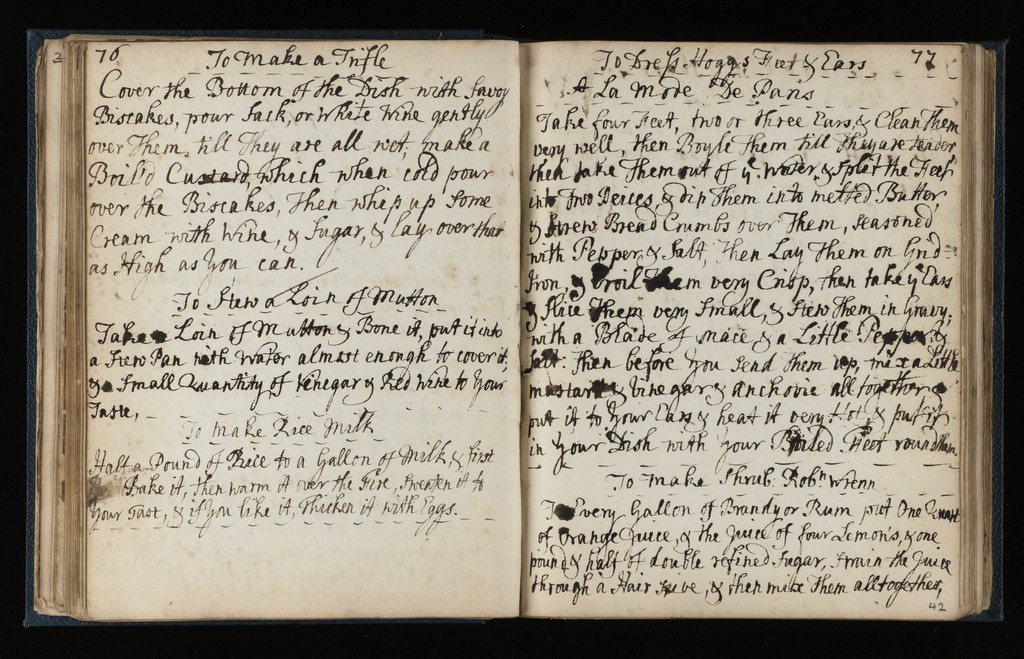 2
76
To Make a Trifle
Cover the Bottom of the Dish with Savoy
Biscakes, pour Sack, or White Wine gently
over Them, till They are all wet, make a
Boil'd Custard, which when cold pour
over the Biscakes, Then whip up Some
Cream with Wine, & Sugar, & lay over that
as High as you can.
To Stew a Loin of Mutton
Take a Loin of Mutton & Bone it, put it into
a Stew Pan with Water almost enough to cover it,
& a Small Quantity of Vinegar & Red Wine to Your
Taste,
To Make Rice Milk
Half a Pound of Rice to a Gallon of Milk, & first
Bake it, then warm it over the Fire, Sweeten it to
Your Tast, & if you like it, Thicken it with Eggs.
77
To Dress Hoggs Feet & Ears
A La Mode De Paris
Take four Feet, two or three Ears, & Clean Them
very well, then Boyle Them till They are tender
then take Them out of ye. Water, & Split the Feet
into Two Peices, & dip Them into melted Butter,
& Strew Bread Crumbs over Them, seasoned
with Pepper, & Salt, Then Lay Them on Grid=
Iron, & Broil Them very Crisp, then take ye Ears
& Slice Them very Small, & Stew Them in Gravy,
with a Blade of mace & a Little Pepper, &
Salt: Then before You Send Them up, mix a Little
mustard & Vinegar & anchovie all together &
put it to Your Ears & heat it very Hot, & put it
in Your Dish with Your Broiled Feet round them
To Make Shrub Robt. Wrenn
To Every Gallon of Brandy or Rum put One Quart
of Orange Juice, & the Juice of four Lemons, & one
pound & half of double refined Sugar, Strain the Juice
through a Hair Sive, & then mixe Them all together,
42